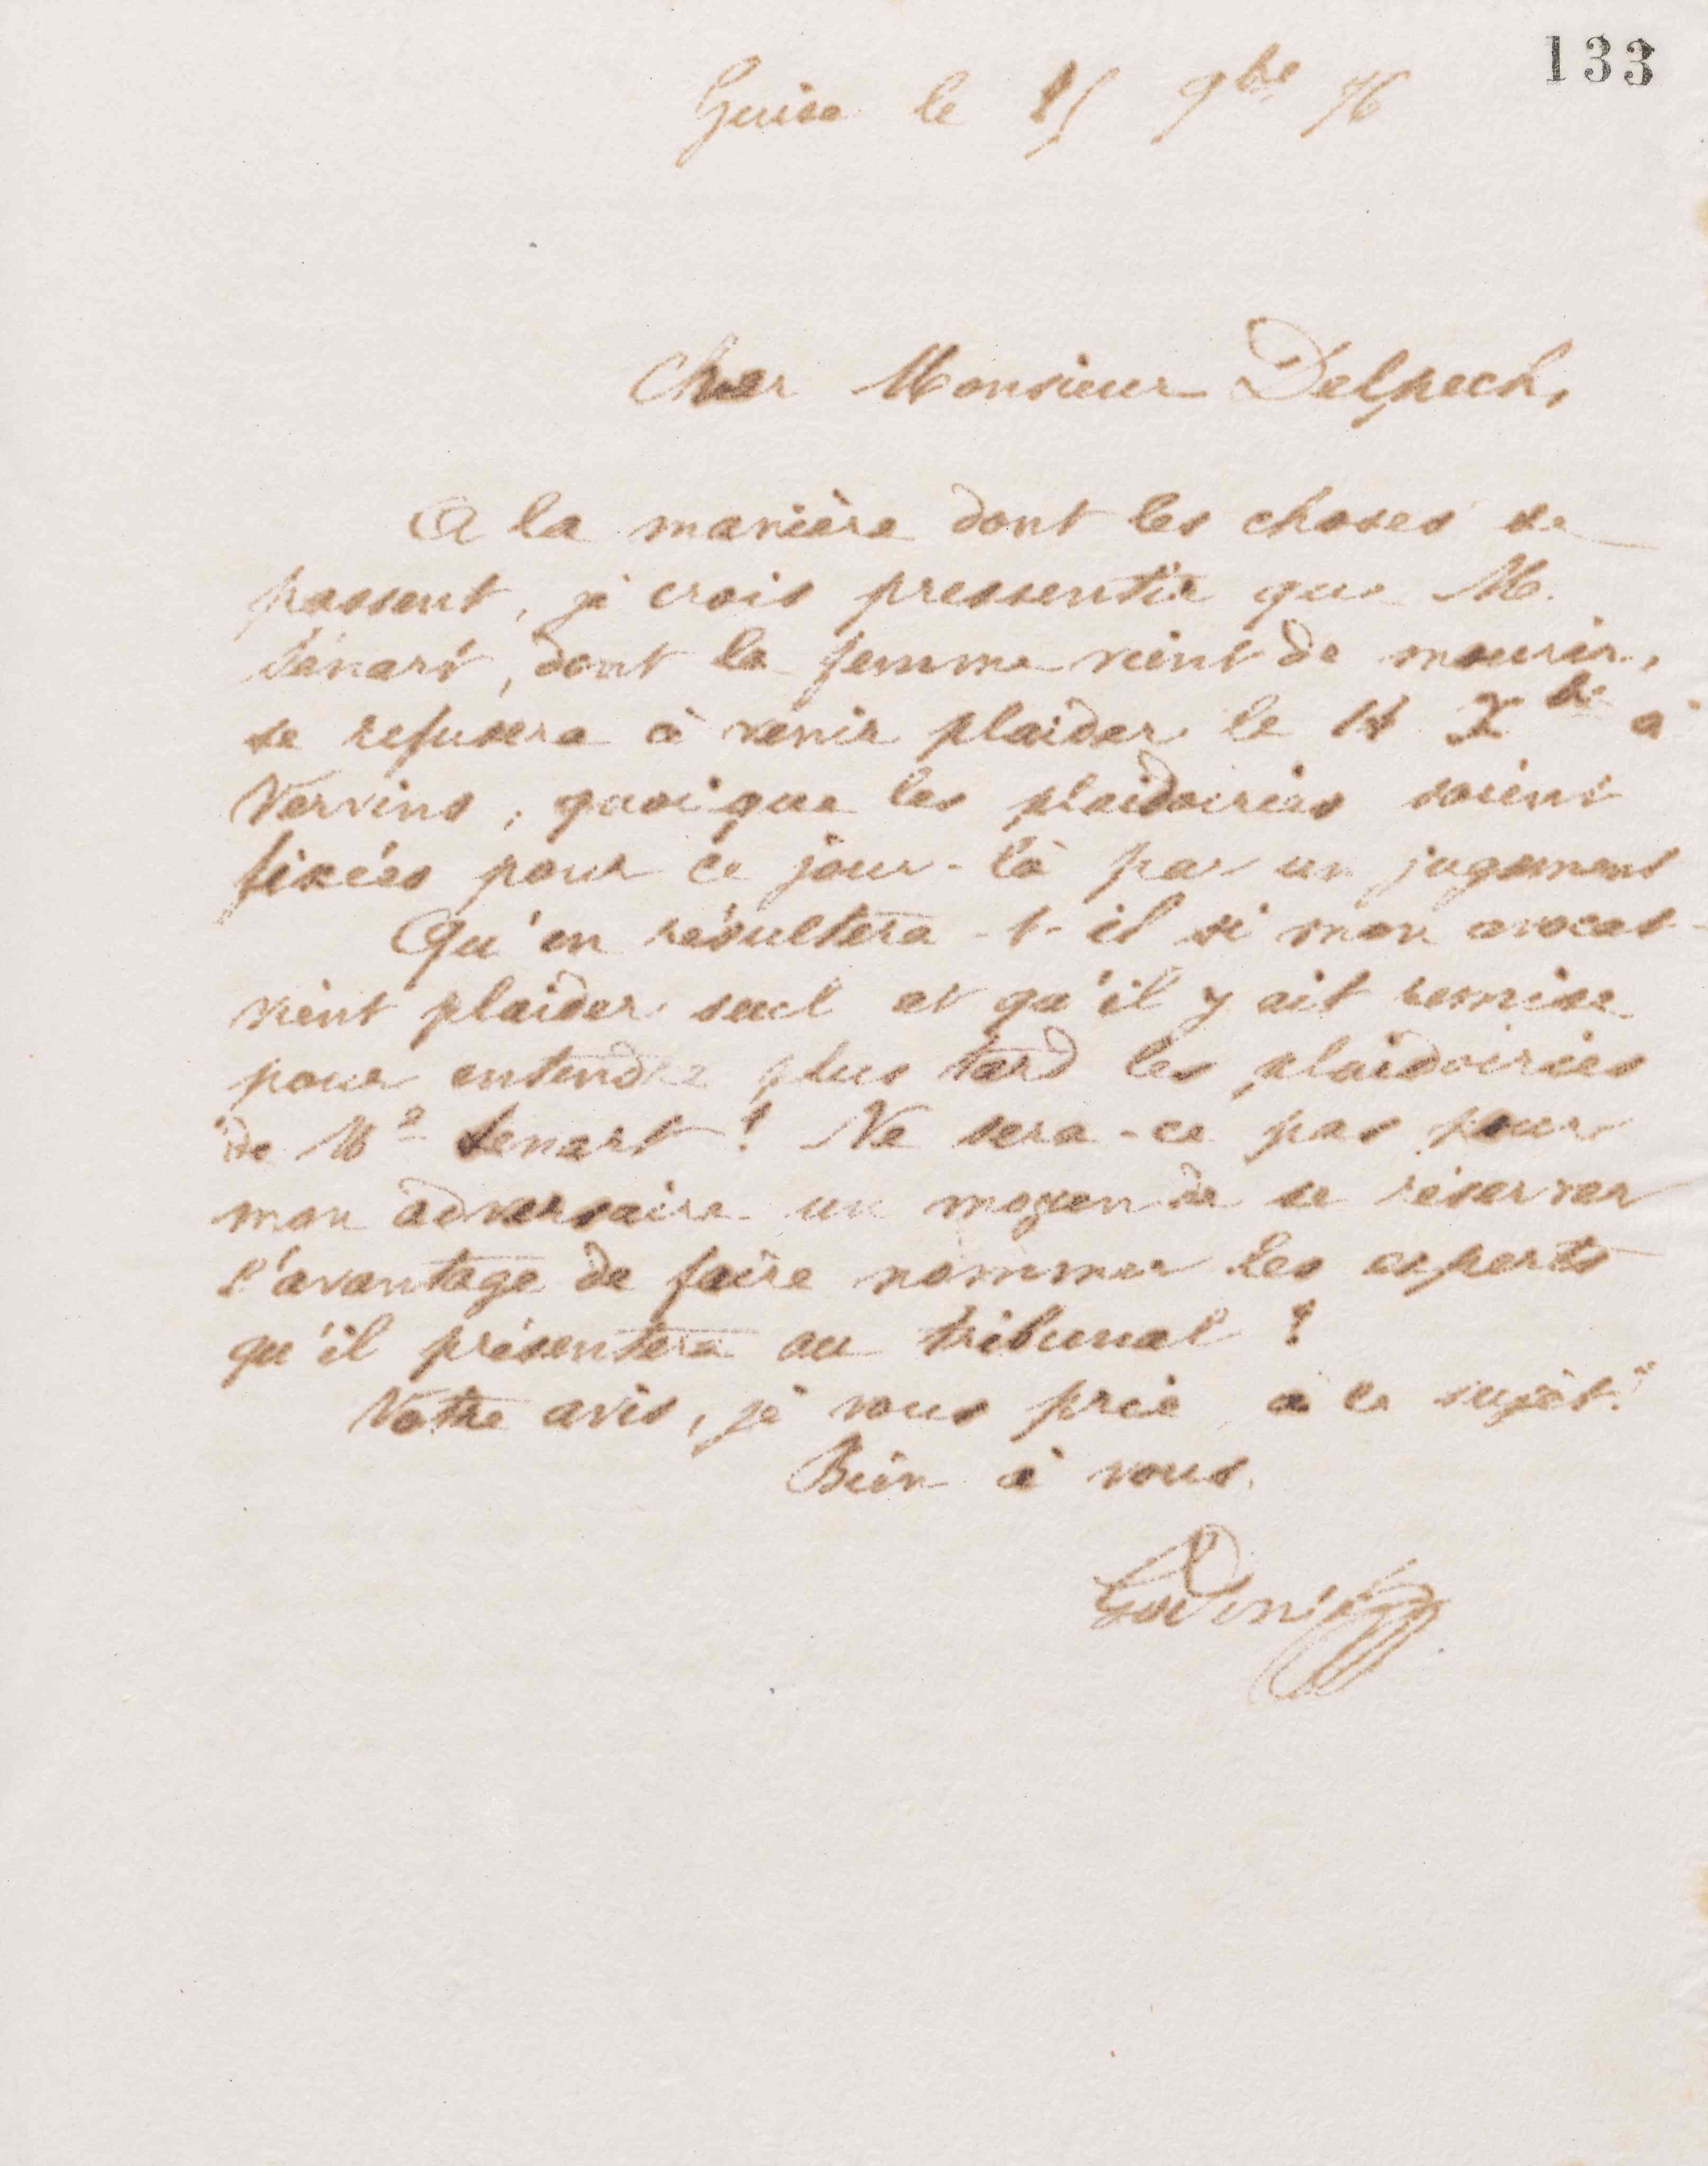 133
Guise le 9bre 76
Cher Monsieur Delpech,
A la manière dont les choses se
passent, je crois pressentir que M.
Sénart, dont la femme vient de mourir,
se refusera à venir plaider le 14 Xbre à
Vervins, quoique les plaidoiries soient
fixées pour ce jour-là par un jugement
Qu'en résultera-t-il si mon avocat
vient plaider seul et qu'il y ait remise
pour entendre plus tard les plaidoiries
de Me Senart ? Ne sera-ce pas pour
mon adversaire un moyen de se réserver
l'avantage de faire nommer les experts
qu'il présentera au tribunal ?
Votre avis, je vous prie à ce sujet.
Bien à vous.
Godin